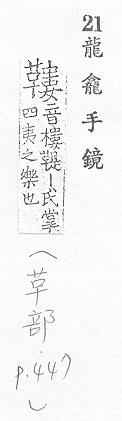 21 龍龕手鏡
音樓鞮丨氏掌
四夷之樂也
(草部 p.447)